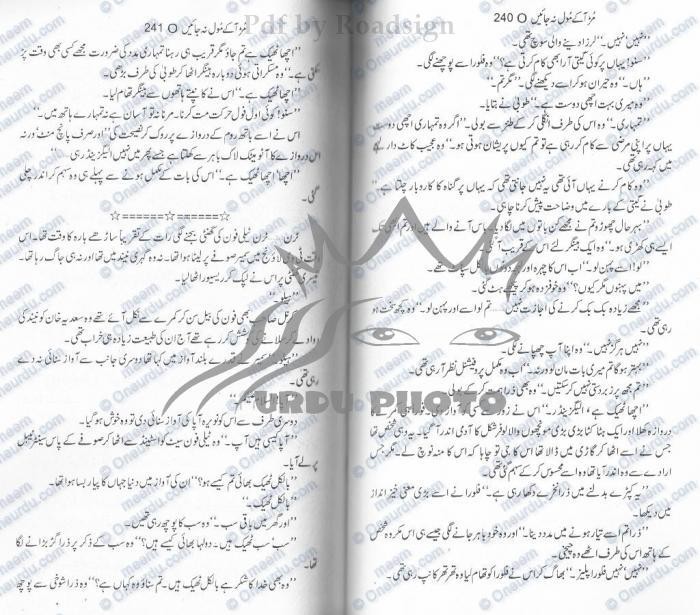 240 O مڑ آ کے مول نہ جائیں
”نہیں‘ نہیں۔“ لرزا دینے والی سوچ تھی۔
”سنو! یہاں پر کوئی گیتی آرا بھی کام کرتی ہے؟“ وہ فلورا سے پوچھنے لگی۔
”ہاں۔“ وہ حیران ہو کر اسے دیکھنے لگی۔ ”مگر تم۔“
”وہ میری بہت اچھی دوست ہے۔“ طوبیٰ نے بتایا۔
”تمہاری۔“ وہ اس کی طرف انگلی کر کے طنز سے بولی۔ ”اگر وہ تمہاری اچھی دوست
یہاں پر اپنی مرضی سے کام کر رہی ہے تو تم کیوں پریشان ہوتی ہو۔“ وہ عجیب کاٹ دار لہجے
میں کہہ رہی تھی۔
”وہ کام کرنے یہاں آئی تھی یہ نہیں جانتی تھی کہ یہاں پر گناہ کا کاروبار چلتا ہے۔“
طوبیٰ نے گیتی کے بارے میں وضاحت پیش کرنا چاہی۔
”بہرحال چھوڑو تم نے مجھے کن باتوں میں لگا دیا۔ باس آنے والے ہیں اور تم ابھی تک
ایسے ہی کھڑی ہو۔“ وہ ایک ہینگر لئے اس کے قریب آ گئی۔
”لو! اسے پہن لو۔“ اب اس کا چہرہ اور
”میں پہنوں مگر کیوں؟“ وہ خوفزدہ ہو کر پیچھے ہٹ گئی۔
”مجھے زیادہ بک بک کرنے کی اجازت نہیں لو اسے اور پہن لو۔“ وہ کچھ سخت ہو
رہی تھی۔
”نہیں ہرگز نہیں۔“ وہ اپنا آپ چھپانے لگی۔
”بہتر ہو گا تم میری بات مان لو ورنہ۔“ اب وہ مکمل پروفیشنل نظر آ رہی تھی۔
”تم مجھ پر زبردستی نہیں کر سکتیں۔“ وہ بھی ذرا ہمت کر کے بولی۔
”اچھا ٹھیک ہے‘ الیگزینڈر۔“ اس نے زور سے کسی کو آواز دی۔
دروازہ کھلا اور ایک ہٹا کٹا بڑی بڑی مونچھوں والا لوفر شکل کا آدمی اندر آ گیا۔ یہ وہی شخص تھا
جس نے اسے اٹھا کر گاڑی میں ڈالا تھا اس کا جی تو چاہا کہ اس کا منہ نوچ لے۔ مگر جس
ارادے سے وہ اندر آیا تھا وہ اسے محسوس کر کے سہم گئی تھی۔
”یہ کپڑے بدلنے میں ذرا نخرے دکھا رہی ہے۔“ فلورا نے اسے بڑی معنی خیز انداز
میں دیکھا۔
”ذرا تم اسے تیار ہونے میں مدد دینا۔“ اور وہ خود باہر جانے لگی جیسے ہی اس مکروہ شخص
کے ہاتھ اس کی طرف اٹھے وہ چیخی۔
”نہیں‘ نہیں فلورا پلیز۔“ بھاگ کر اس نے فلورا کو تھام لیا وہ تھر تھر کانپ رہی تھی۔
241 O مڑ آ کے مول نہ جائیں
Pdf by Roadsign
”اچھا ٹھیک ہے تم جاؤ مگر قریب ہی رہنا تمہاری مدد کی ضرورت مجھے کسی بھی وقت پڑ
سکتی ہے۔“ وہ مسکراتی ہوئی دوبارہ ہینگر اٹھا کر طوبیٰ کی طرف بڑھی۔
”اچھا ٹھیک ہے۔“ اس نے کانپتے ہاتھوں سے ہینگر تھام لیا۔
”سنو! کوئی اول فول حرکت مت کرنا۔ مرنا نہ تو آسان ہے نہ تمہارے ہاتھ میں۔“
اس نے اسے باتھ روم کے دروازے پر روک کر نصیحت کی ”اور صرف پانچ منٹ‘ ورنہ
اس دروازے کا آٹومیٹک لاک باہر سے کھلتا ہے جسے پھر میں نہیں الیگزینڈر ہی“
”اچھا‘ اچھا ٹھیک ہے۔“ اس کی بات کے مکمل ہونے سے پہلے ہی وہ سہم کر اندر چلی
گئی۔
☆======☆======☆
ٹرن ٹرن ٹیلی فون کی گھنٹی بجنے لگی رات کے تقریباً ساڑھے بارہ کا وقت تھا۔ اس
وقت ٹی وی لاؤنج میں سمیر صوفے پر لیٹا ہوا تھا۔ نہ وہ گہری نیند میں تھا اور نہ ہی جاگ رہا تھا۔
گھنٹی پر اس نے لپک کر ریسیور اٹھا لیا۔
”ہیلو۔“
کرنل صاحب بھی فون کی بیل سن کر کمرے سے نکل آئے تھے وہ سعدیہ خان کو نیند کی
دوا دے کر سلانے کی کوشش کر رہے تھے آج ان کی طبیعت زیادہ ہی خراب تھی۔
”ہیلو۔“ سمیر نے قدرے بلند آواز میں کہا تھا دوسری جانب سے آواز سنائی نہ دے
رہی تھی۔
دوسری طرف سے اس کو نویرہ آپا کی آواز سنائی دی تو وہ خوش ہو گیا۔
”آپا کیسی ہیں آپ۔“ وہ ٹیلی فون سیٹ کو اسٹینڈ سے اٹھا کر صوفے کے پاس سینٹر ٹیبل
پر لے آیا۔
”بالکل ٹھیک بھائی تم کیسے ہو؟“ ان کی آواز میں دنیا جہاں کا پیار بسا ہوا تھا۔
”بالکل ٹھیک۔“
”اور گھر میں باقی سب۔“ وہ سب کا پوچھ رہی تھیں۔
”سب‘ سب ٹھیک ہیں۔ دولہا بھائی کیسے ہیں؟“ وہ سب کے ذکر پر ذرا گڑبڑانے لگا
تھا۔
”وہ بھی خدا کا شکر ہے بالکل ٹھیک ہیں۔ تم سناؤ وہ کہاں ہے؟“ وہ ذرا شوخی سے پوچھ
URDU PHOTO
Oneurdu.com